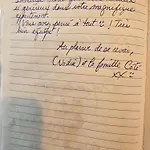 si généreux dans votre magnifique
appartement.
Vous avez pensé à tout ! Très
bon séjour !
Au plaisir de se revoir,
(Nadia) & la famille Côté
xx